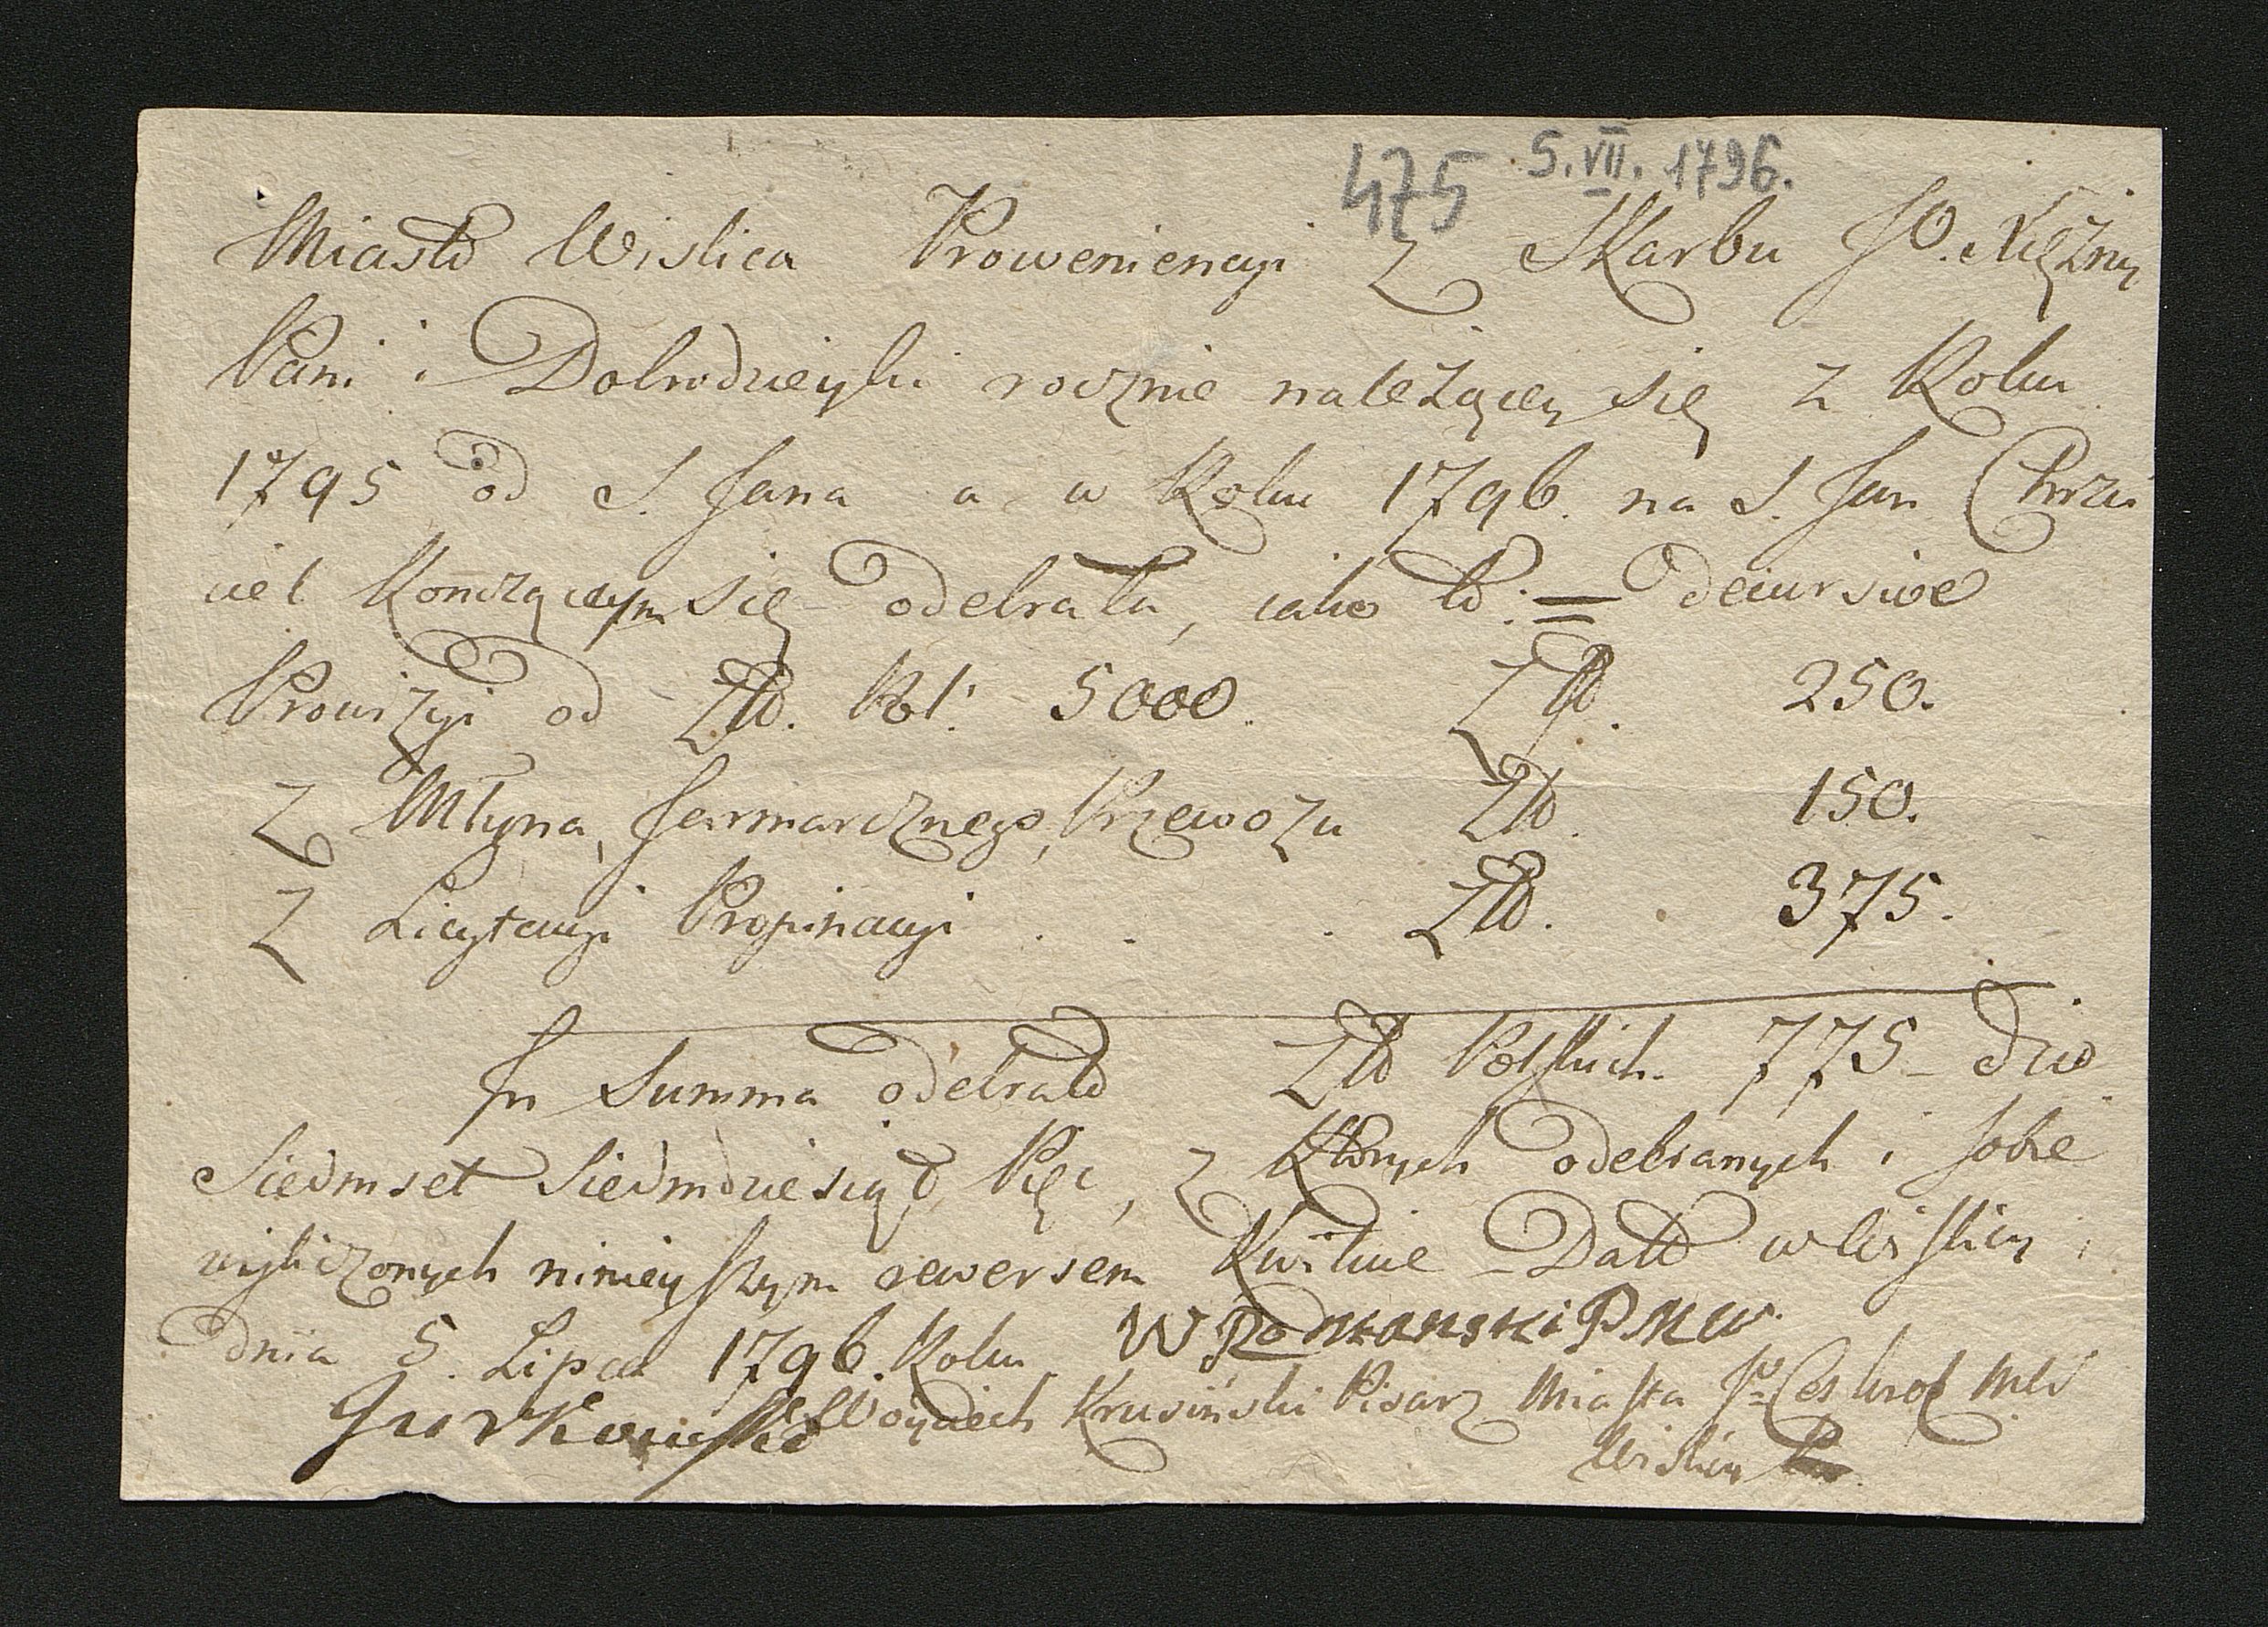 475 5.VII.1796.
Miasto Wislica Proweniencyi z Skarbu JO. Xiężny
Pani i Dobrodzieyki rocznie należącey się z Roku
1795 od S. Jana a w Roku 1796. na S. Jan Chrzci
ciel Kończącym się odebrała, iako to: = decursive
Prowizyi od Złł. Pol: 5000. Złł. 250.
Z Młyna, Jarmarcznego, Przewozu Złł. 150.
Z Licytacyi Propinacyi . . . Złł. . 375.
In Summa odebrało Złł Polskich. 775 – dico
Siedmset Siedmdziesiąt Pięć, z Których odebranych i sobie
wyliczonych ninieyszym rewersem Kwituie – Datt w Wislicy
dnia 5. Lipca 1796. Roku W Romanski P M W.
Woyciech Krusiński Pisarz Miasta
Wislicy